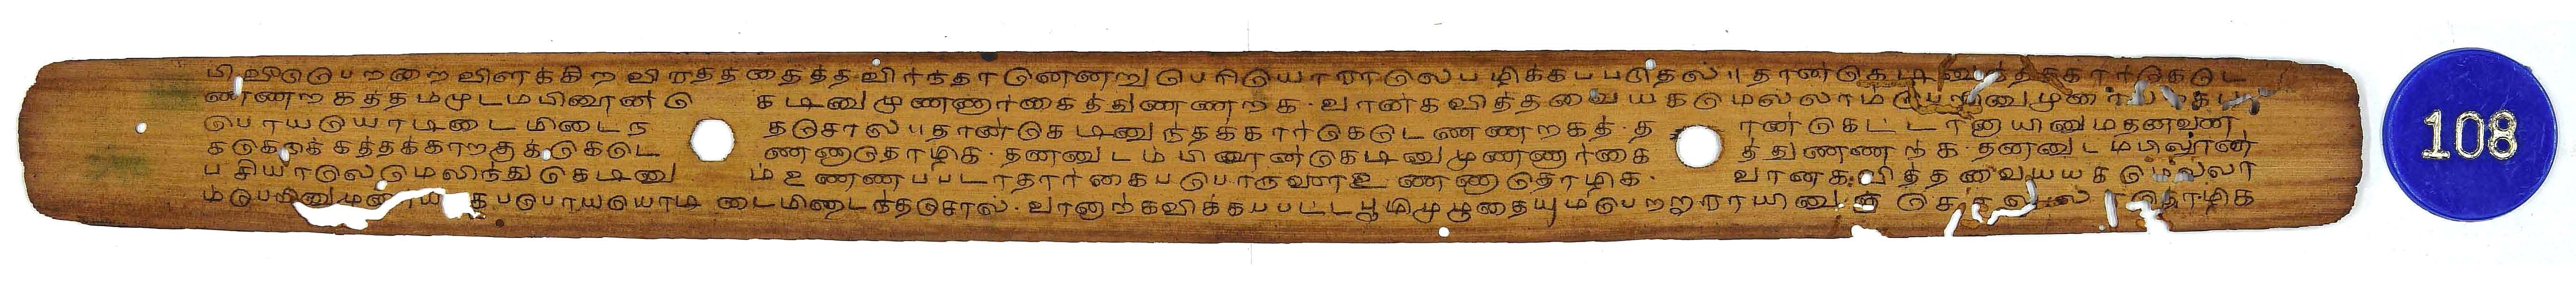 வீடுபெறறை விளக்கிற விரதத்தைத்தவிர்ந்தா பெரியோராலே பழிக்கபபடுதல் ॥ தான்கெடினுந்தக்கார்கேடெ
ணணறகத்தமமுடமபினூன்கெ டினுமுணணார்கைத்துணணறக - வான்கவித்தவையகமெல்லாம்பெறினுமுரையறக
பொயயோடிடைமிடைந தசொல் ॥ தான்கெடினுந்தக்கார்கேடெணணறகத் - தா ன்கெட்டானாயினுமதனவன
தக்காறகுக்கேடெ ணணாதொழிக - தனனுடமபினூன்கெடினுமுணணார்கை த்துணணற்க - தனனுடமபினூன்
பசியாலேமெலிந்துகெடினு ம் உணணபபடாதார்கைபபொருளை உணணாதொழிக - வானகவித்தவையயகமெல்லா
ம்பெறினுமுரையறகபொயயோடி டைமிடைந்தசொல் - வானாற்கவிக்கபபட்டபூமிமுழுதையுமபெறறாராயினுஞ் தொழிக
108